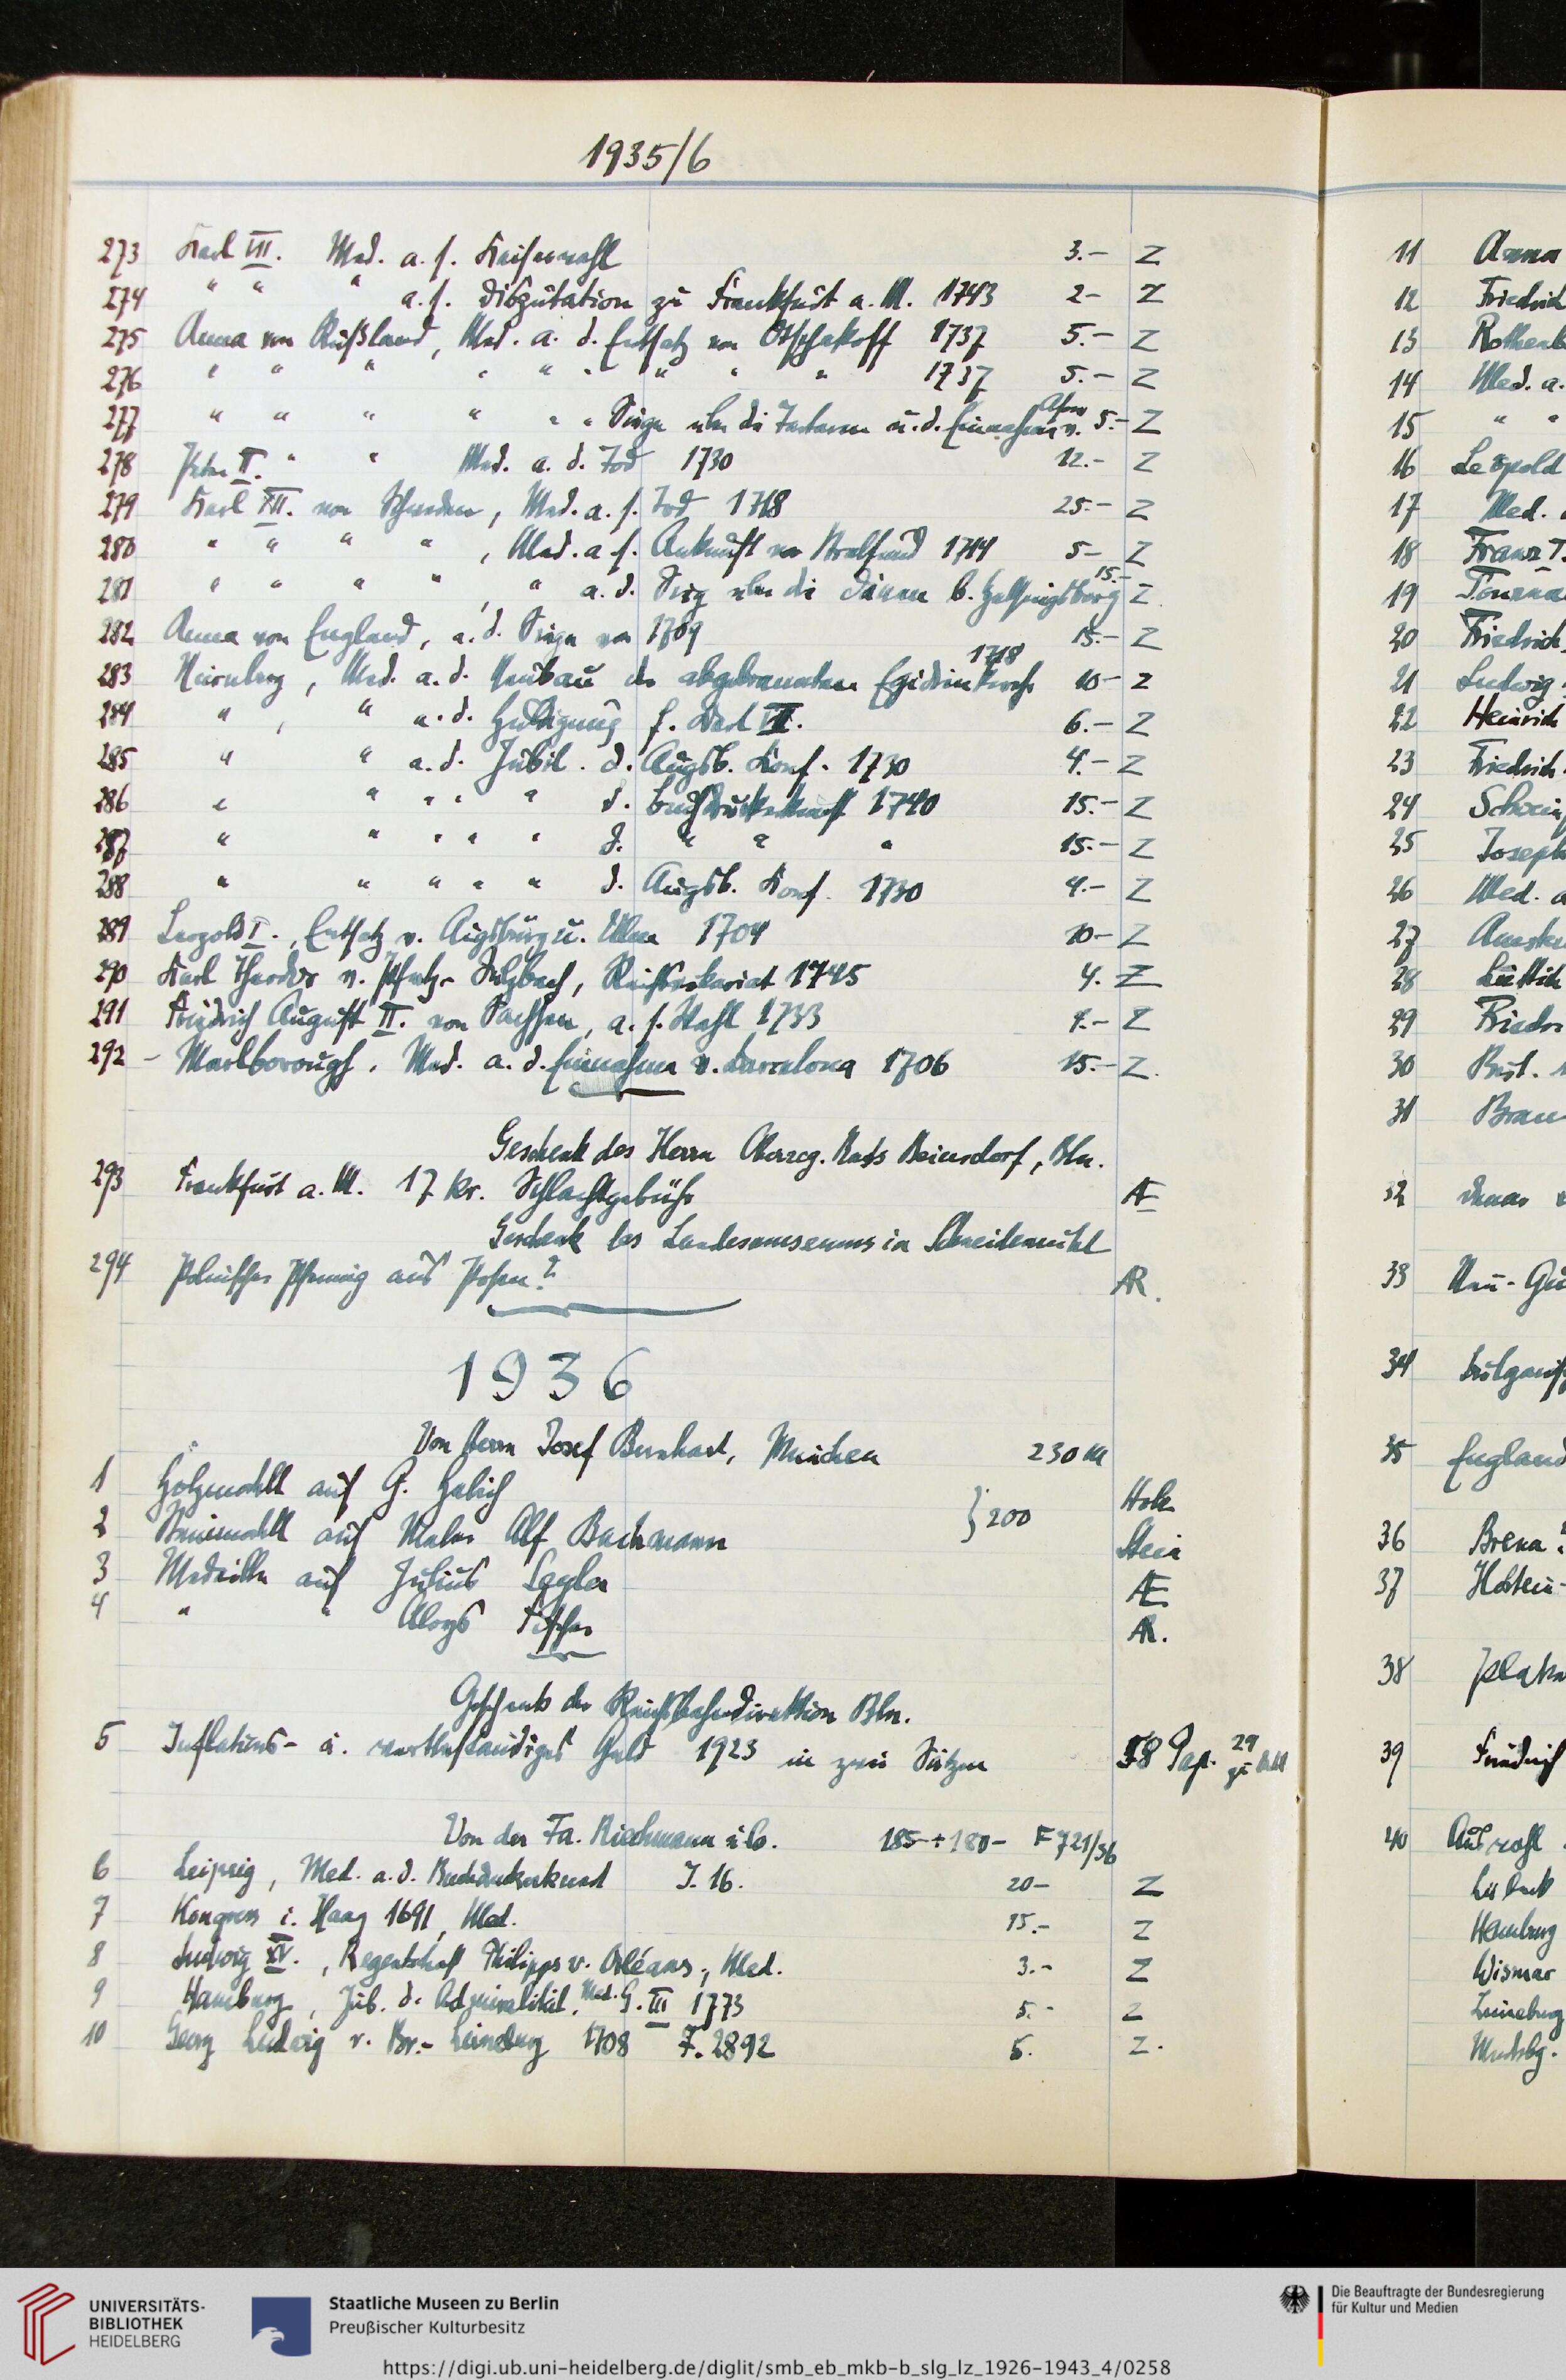 1935/6
273 Karl VII. Med. a. s. Kaiserwahl 3.- Z
274 " " " a. s. Disputation zu Frankfurt a. M. 1743 2- Z
275 Anna von Rußland, Med. a. d. Entsatz von Otschakoff 1737 5.- Z
276 " " " " " " " " " 1737 5.- Z
277 " " " " " " Siege über die Tartaren u. d. Einnahme v. Asow 5.- Z
278 Peter II. " " Med. a. d. Tod 1730 12.- Z
279 Karl XII. von Schweden, Med. a. s. Tod 1718 25.- Z
280 " " " " , Med. a. s. Ankunft von Stralsund 1714 5- Z
281 " " " " , " a. d. Sieg über die Dänen b. Helsingborg 15.- Z.
282 Anna von England, a. d. Siege von 1709 15.- Z
283 Nürnberg, Med. a. d. Neubau der abgebrannten Egidienkirche 1718 10- Z
284 " , " a. d. Huldigung f. Karl VII. 6.- Z
285 " " a. d. Jubil. d. Augsb. Konf. 1730 4.- Z
286 " " " " " d. Buchdruckerkunst 1740 15.- Z
287 " " " " " d. " " " 15.- Z
288 " " " " " d. Augsb. Konf. 1730 4.- Z
289 Leopold I., Entsatz v. Augsburg u. Ulm 1704 10- Z
290 Karl Theodor v. Pfalz-Sulzbach, Reichsvikariat 1745 4. Z
291 Friedrich August II. von Sachsen, a. s. Wahl 1733 4.- Z
292 - Marlborough. Med. a. d. Einnahme v. Barcelona 1706 15.- Z.
Geschenk des Herrn Oberreg. Rats Beiersdorf, Bln.
293 Frankfurt a. M. 17 kr. Schlachtgebühr Æ
Geschenk des Landesmuseums in Schneidemühl
294 Polnischer Pfennig aus Posen? AR.
1936
Von Herrn Josef Bernhart, München 230 M
1 Holzmodell auf G. Habich } 200 Holz
2 Steinmodell auf Maler Alf Bachmann Stein
3 Medaille auf Julius Seyler Æ
4 " " Aloys Fischer AR.
Geschenk der Reichsbahndirektion Bln.
5 Inflations- u. wertbeständiges Geld 1923 in zwei Sätzen 58 Pap. 29
Von der Fa. Riechmann & Co. 185-+180- F 721/36
6 Leipzig, Med. a. d. Buchdruckerkunst J. 16. 20- Z
7 Kongress i. Haag 1691, Med. 15.- Z
8 Ludwig XV., Regentschaft Philipps v. Orléans, Med. 3.- Z
9 Hamburg, Jub. d. Admiralität, Med. G. III 1773 5.- Z
10 Georg Ludwig v. Br.-Lüneburg 1708 F. 2892 5. Z.
11 Anna
12 Friedrich
13 Rothenb
14 Med. a.
15 " "
16 Leopold
17 Med.
18 Franz I.
19
20 Friedrich
21 Ludwig
22 Heinrich
23 Friedrich
24 Schwein
25 Joseph
26 Med. a
27 Amster
28 Lüttich
29 Friedr
30
31 Brau
32 Denar
33 Neu-Gui
34 Bulgarisch
35 England
36 Brena?
37 Holstein-
38
39 Friedrich
40 Auswahl
Lübeck
Hamburg
Wismar
Lüneburg
UNIVERSITÄTS-
BIBLIOTHEK
HEIDELBERG
Staatliche Museen zu Berlin
Preußischer Kulturbesitz
Die Beauftragte der Bundesregierung
für Kultur und Medien
https://digi.ub.uni-heidelberg.de/diglit/smb_eb_mkb-b_slg_lz_1926-1943_4/0258